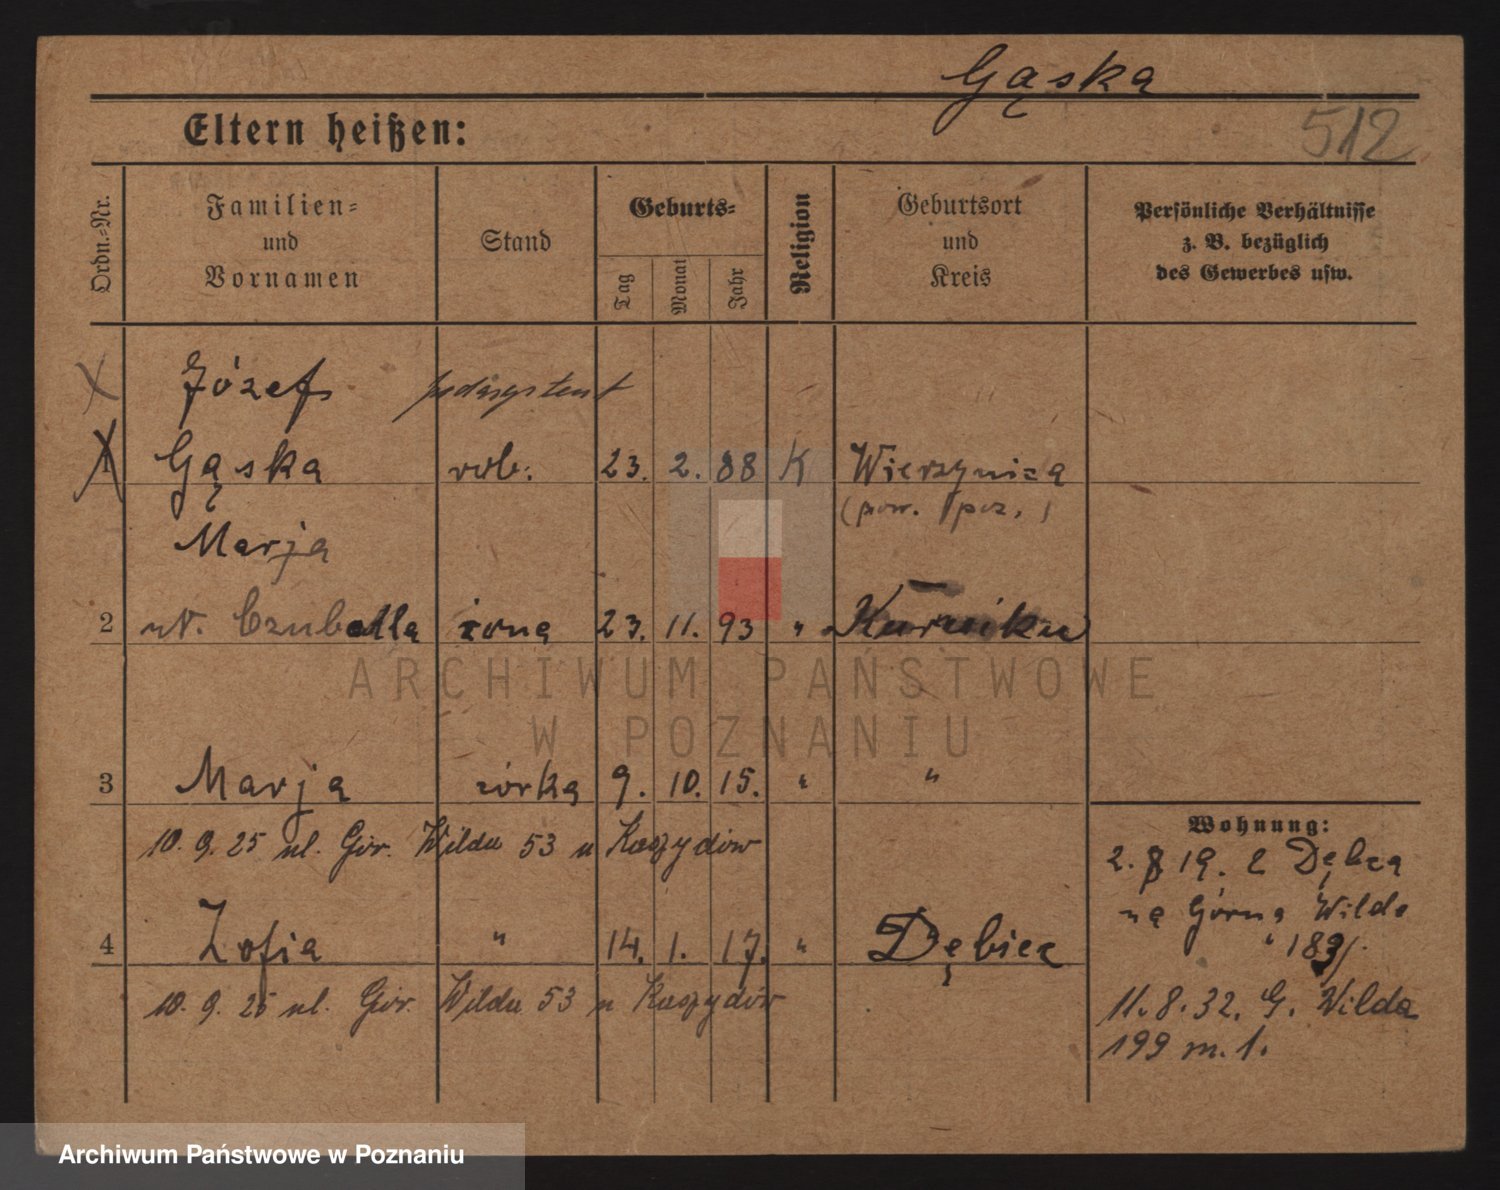 Gąska
512
Eltern heißen:
Ordn.-Nr.
Familien- und Vornamen
Stand
Geburts-
Tag
Monat
Jahr
Religion
Geburtsort und Kreis
Persönliche Verhältnisse z. B. bezüglich des Gewerbes usw.
Józef
1 Gąska rob. 23. 2. 88 K Wierzynica
(pow. poz.)
Marja
2 Czubella żona 23. 11. 93 "
3 Marja córka 9. 10. 15. " "
10. 9. 25 ul. Gór. Wilda 53 u Kaszydów
4 Zofia " 14. 1. 17. " Dębiec
10. 9. 25 ul. Gór. Wilda 53 u Kaszydów
Wohnung:
2. 8 19. z Dębca
na Górna Wilda
11. 8. 32. G. Wilda
199 m. 1.
ARCHIWUM PAŃSTWOWE
W POZNANIU
Archiwum Państwowe w Poznaniu